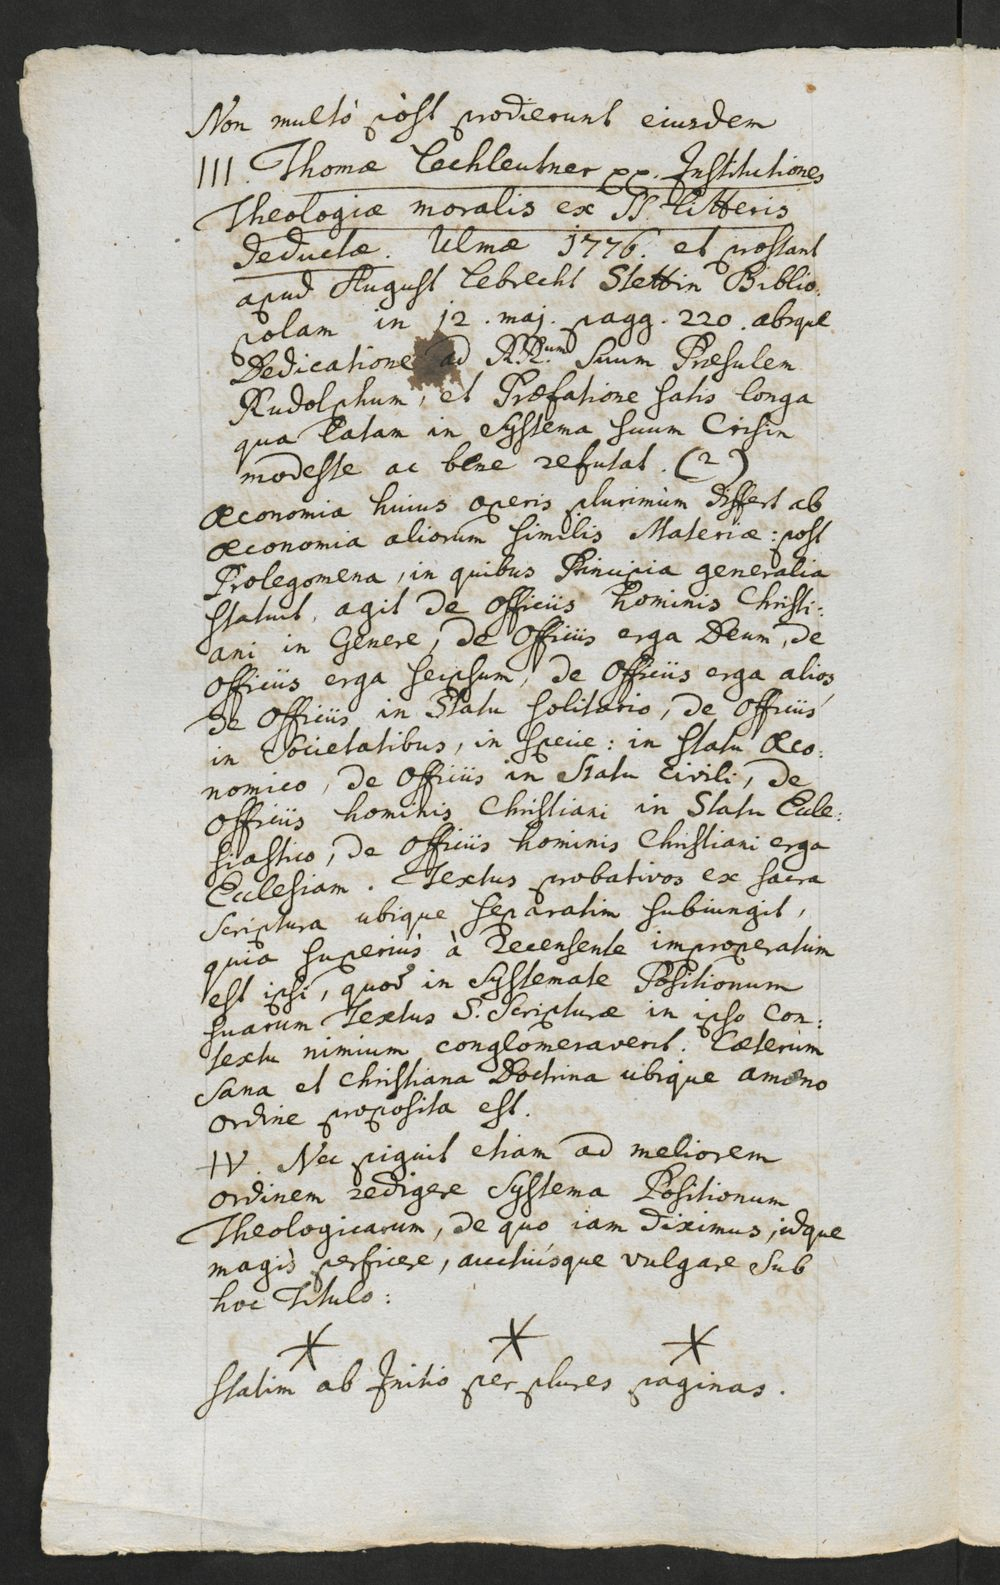 Non multò pòst prodierunt eiusdem
III. Thomæ Lechleutner pp. Institutiones
Theologiæ moralis ex SS. Litteris
deductæ. Ulmæ 1776. et prostant
apud August Lebrecht Stettin Biblio-
polam in 12. maj. pagg. 220. absque
Dedicatione ad RR.um Suum Præsulem
Rudolphum, et Præfatione satis longa
qua latam in Systema suum Crisin
modeste ac bene refutat. (2)
Œconomia huius operis plurimùm differt ab
Œconomia aliorum similis Materiæ: post
Prolegomena, in quibus Principia generalia
statuit, agit de Officiis hominis Christi-
ani in Genere, de Officiis erga Deum, de
Officiis erga seipsum, de Officiis erga alios,
de Officiis in Statu solitario, de Officiis
in Societatibus, in specie: in statu Œco-
nomico, de Officiis in Statu Civili, de
Officiis hominis Christiani in Statu Eccle-
siastico, de Officiis hominis Christiani erga
Ecclesiam. Textus probativos ex sacra
Scriptura ubique separatim subiungit,
quia superiùs à Recensente improperatum
est ipsi, quod in Systemate Positionum
suarum Textus S. Scripturæ in ipso Con-
textu nimium conglomeraverit. Cæterùm
Sana et Christiana Doctrina ubique amœno
ordine proposita est.
IV. Nec piguit etiam ad meliorem
ordinem redigere Systema Positionum
Theologicarum, de quo iam diximus, idque
magis perficere, auctiùsque vulgare sub
hoc Titulo:
* * *
statim ab Initio per plures paginas.